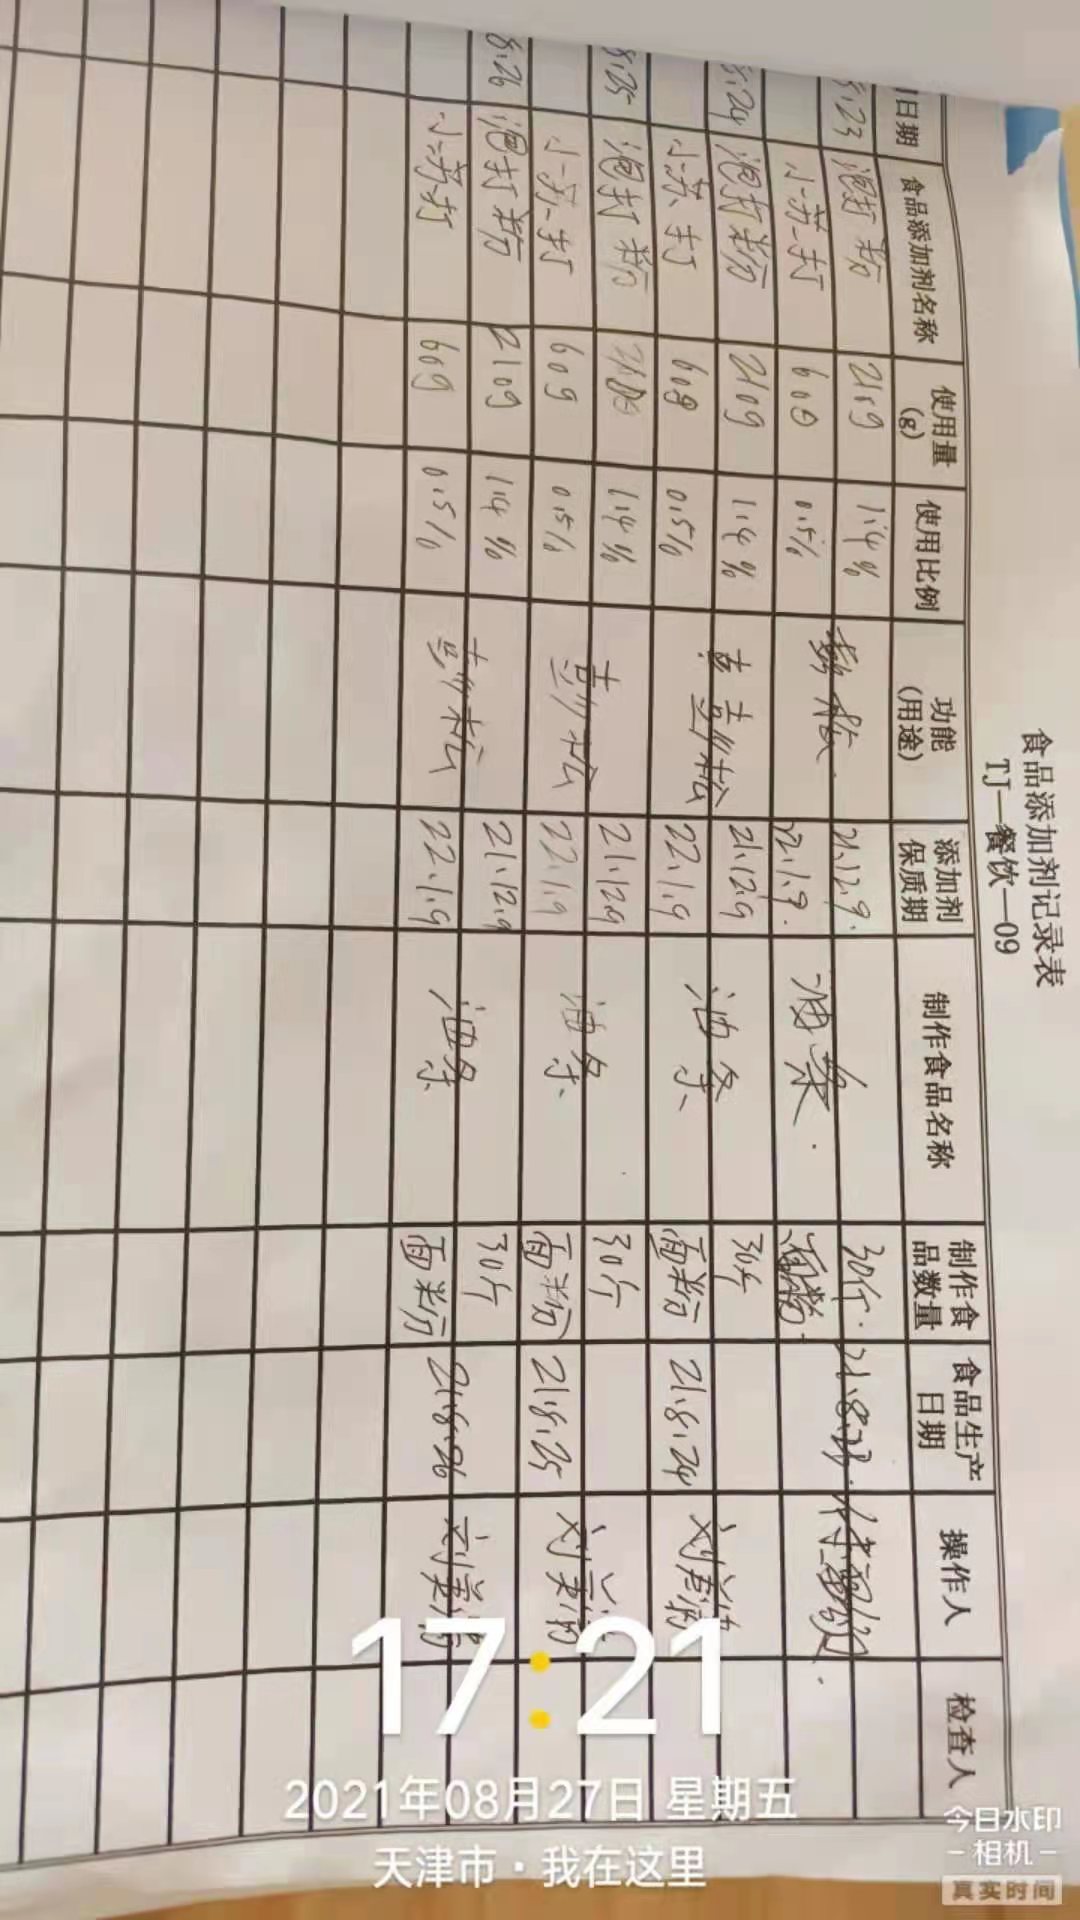 食品添加剂记录表
TJ—餐饮—09
日期 食品添加剂名称 使用量(g) 使用比例 功能(用途) 添加剂保质期 制作食品名称 制作食品数量 食品生产日期 操作人 检查人
8.23 泡打粉 210g 1.4% 21.12.9. 30斤. 21.8.23.
小苏打 60g 0.5% 22.1.9. 面粉
8.24 泡打粉 210g 1.4% 蓬松 21.12.9 油条 30斤
小苏打 60g 0.5% 22.1.9 面粉 21.8.24
8.25 泡打粉 1.4% 膨松 21.12.9 油条 30斤
小苏打 60g 0.5% 22.1.9 面粉 21.8.25
8.26 泡打粉 210g 1.4% 膨松 21.12.9 油条 30斤
小苏打 60g 0.5% 22.1.9 面粉 21.8.26
17:21
2021年08月27日 星期五
天津市·我在这里
今日水印
-相机-
真实时间